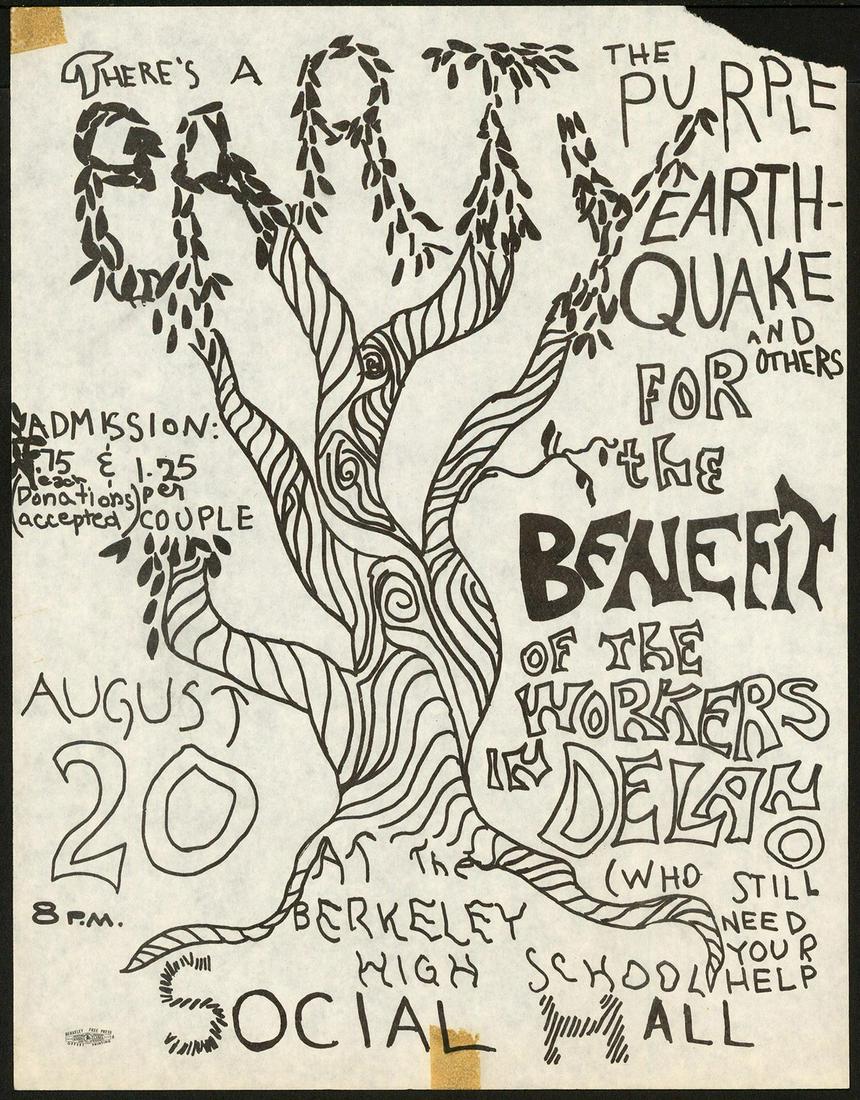 THERE'S A
PARTY
THE
PURPLE
EARTH-
QUAKE
AND
OTHERS
FOR
the
BENEFIT
OF THE
WORKERS
IN DELANO
(WHO STILL
NEED
YOUR
HELP
ADMISSION:
.75 & 1.25
each per
(Donations COUPLE
accepted)
AUGUST
20
8 P.M.
AT The
BERKELEY
HIGH SCHOOL
SOCIAL HALL
BERKELEY FREE PRESS
OFFSET PRINTING